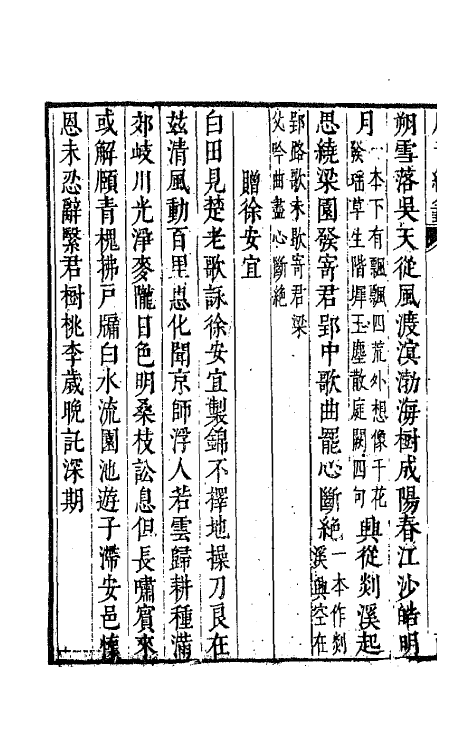 朔雪落吳天從風渡溟渤海樹成陽春江沙皓明
月一本下有飄飄四荒外想像千花
發瑤草生階墀玉塵散庭闕四句興從剡溪起
思繞梁園發寄君郢中歌曲罷心斷絕一本作剡
溪興空在
郢路歌未歇寄君梁
父吟曲盡心斷絕
贈徐安宜
白田見楚老歌詠徐安宜製錦不擇地操刀良在
玆清風動百里惠化聞京師浮人若雲歸耕種滿
郊岐川光淨麥隴日色明桑枝訟息但長嘯賓來
或解頤青槐拂戶牖白水流園池遊子滯安邑懷
恩未忍辭繄君樹桃李歲晚託深期